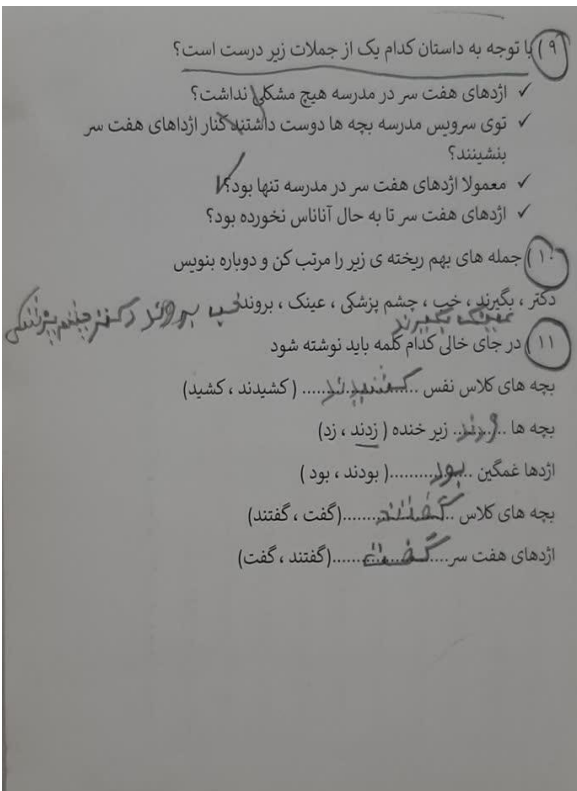 ۹) با توجه به داستان کدام یک از جملات زیر درست است؟
✓ اژدهای هفت سر در مدرسه هیچ مشکلی نداشت؟
✓ توی سرویس مدرسه بچه ها دوست داشتند کنار اژداهای هفت سر
بنشینند؟
✓ معمولا اژدهای هفت سر در مدرسه تنها بود؟
✓ اژدهای هفت سر تا به حال آناناس نخورده بود؟
۱۰) جمله های بهم ریخته ی زیر را مرتب کن و دوباره بنویس
دکتر ، بگیرند ، خب ، چشم پزشکی ، عینک ، بروند خب بروند دکتر چشم پزشکی
عینک بگیرند
۱۱) در جای خالی کدام کلمه باید نوشته شود
بچه های کلاس نفس ...کشیدند... ( کشیدند ، کشید)
بچه ها ..زدند.. زیر خنده ( زدند ، زد)
اژدها غمگین ..بود.........( بودند ، بود )
بچه های کلاس ..گفتند........(گفت ، گفتند)
اژدهای هفت سر....گفت......(گفتند ، گفت)